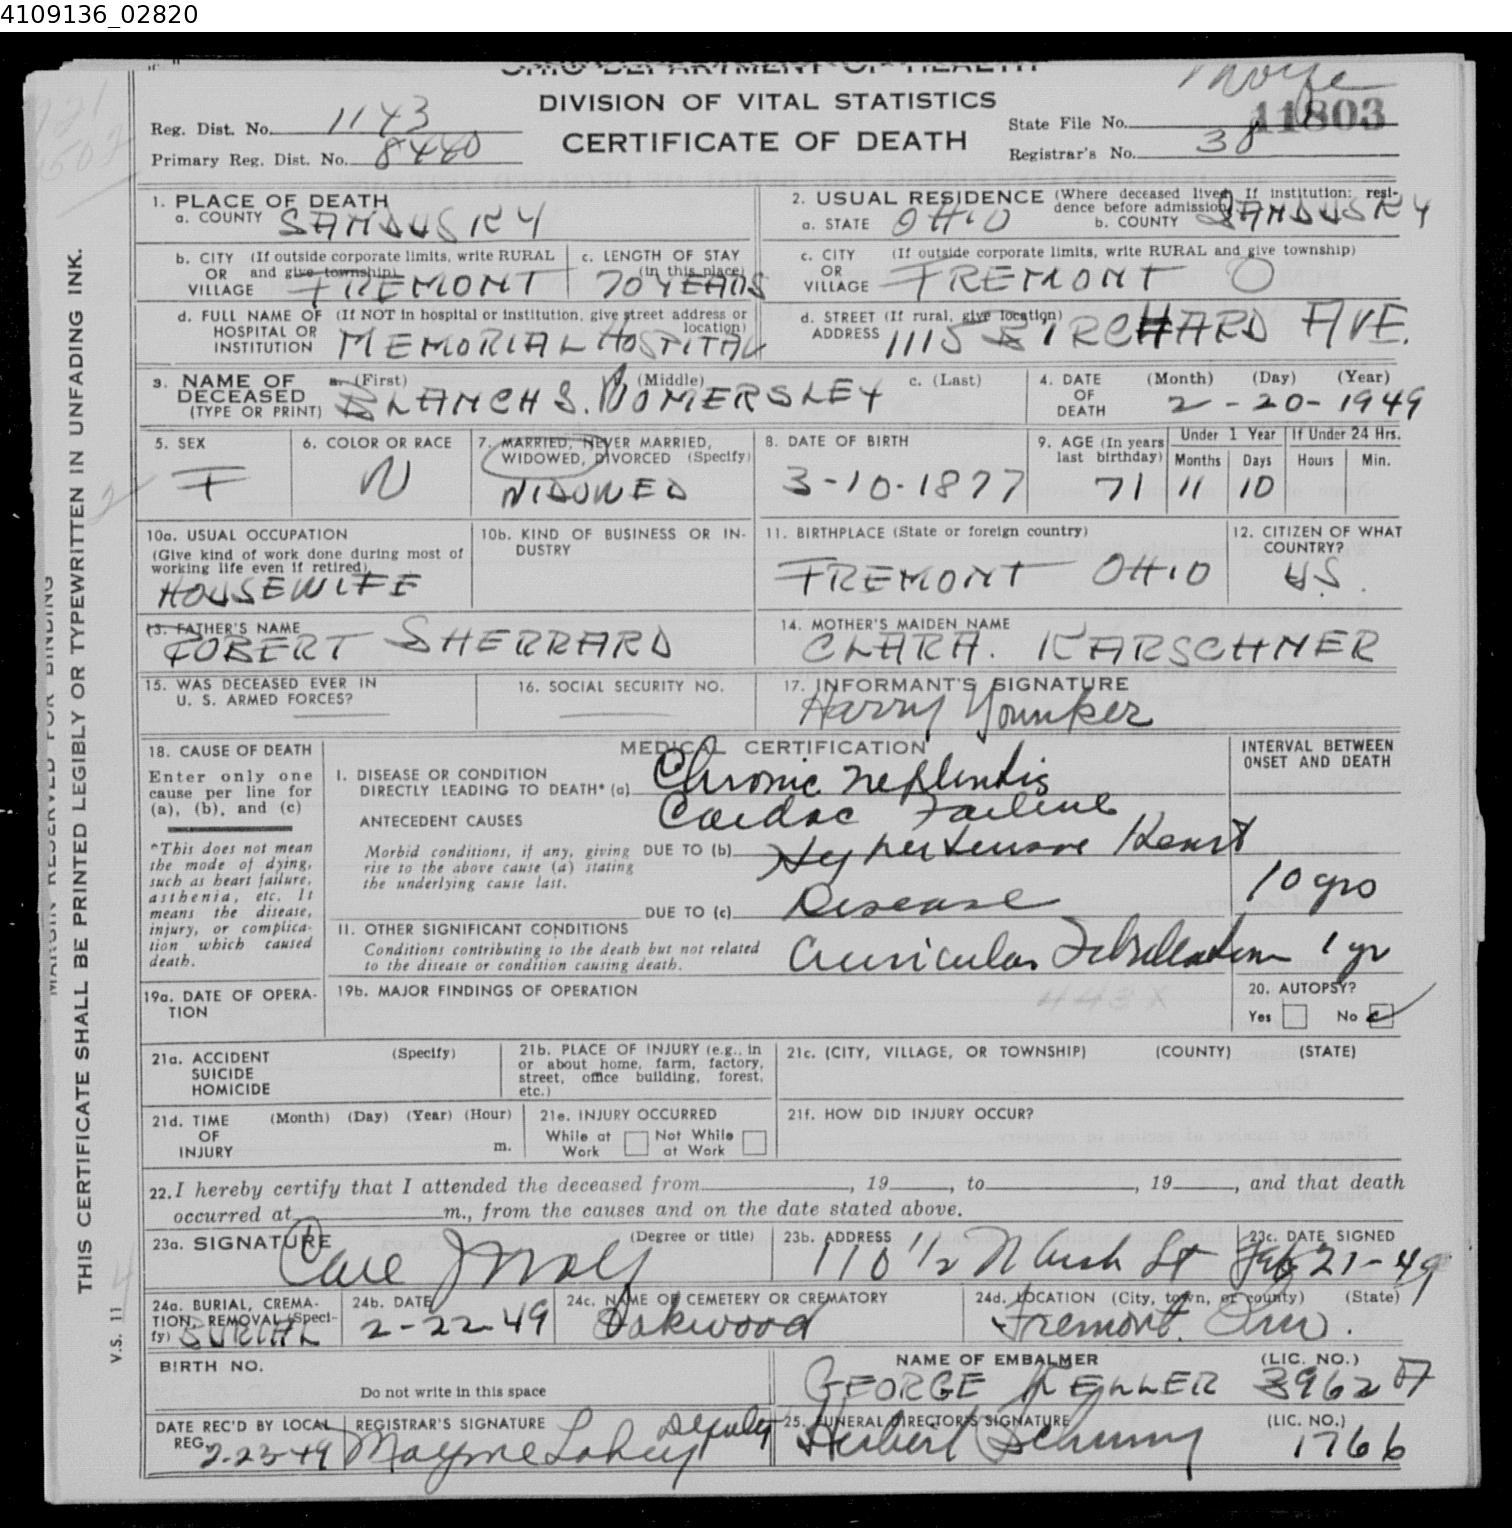 4109136_02820
OHIO DEPARTMENT OF HEALTH
DIVISION OF VITAL STATISTICS
CERTIFICATE OF DEATH
Reg. Dist. No. 1143
Primary Reg. Dist. No. 8440
State File No. 11803
Registrar's No. 38
1. PLACE OF DEATH
a. COUNTY SANDUSKY
2. USUAL RESIDENCE (Where deceased lived. If institution: residence before admission)
a. STATE OHIO b. COUNTY SANDUSKY
b. CITY (If outside corporate limits, write RURAL
OR and give township)
VILLAGE FREMONT
c. LENGTH OF STAY
(in this place)
70 YEARS
c. CITY (If outside corporate limits, write RURAL and give township)
OR
VILLAGE FREMONT O
d. FULL NAME OF (If NOT in hospital or institution, give street address or
HOSPITAL OR location)
INSTITUTION MEMORIAL HOSPITAL
d. STREET (If rural, give location)
ADDRESS 1115 BIRCHARD AVE.
3. NAME OF a. (First) (Middle) c. (Last)
DECEASED
(TYPE OR PRINT) BLANCH S. WOMERSLEY
4. DATE (Month) (Day) (Year)
OF
DEATH 2-20-1949
5. SEX
F
6. COLOR OR RACE
W
7. MARRIED, NEVER MARRIED,
WIDOWED, DIVORCED (Specify)
WIDOWED
8. DATE OF BIRTH
3-10-1877
9. AGE (In years
last birthday)
71
Under 1 Year
Months Days
11 10
If Under 24 Hrs.
Hours Min.
10a. USUAL OCCUPATION
(Give kind of work done during most of
working life even if retired)
HOUSEWIFE
10b. KIND OF BUSINESS OR IN-
DUSTRY
11. BIRTHPLACE (State or foreign country)
FREMONT OHIO
12. CITIZEN OF WHAT
COUNTRY?
U.S.
13. FATHER'S NAME
ROBERT SHERRARD
14. MOTHER'S MAIDEN NAME
CLARA. KARSCHNER
15. WAS DECEASED EVER IN
U. S. ARMED FORCES?
16. SOCIAL SECURITY NO.
17. INFORMANT'S SIGNATURE
Harry Younker
18. CAUSE OF DEATH
Enter only one
cause per line for
(a), (b), and (c)
*This does not mean
the mode of dying,
such as heart failure,
asthenia, etc. It
means the disease,
injury, or complica-
tion which caused
death.
MEDICAL CERTIFICATION
INTERVAL BETWEEN
ONSET AND DEATH
I. DISEASE OR CONDITION
DIRECTLY LEADING TO DEATH* (a) Chronic nephritis
Cardiac Failure
ANTECEDENT CAUSES
Morbid conditions, if any, giving
rise to the above cause (a) stating
the underlying cause last.
DUE TO (b) Hypertensive Heart
10 yrs
DUE TO (c) Disease
II. OTHER SIGNIFICANT CONDITIONS
Conditions contributing to the death but not related
to the disease or condition causing death.
Auricular Fibrillation 1 yr
19a. DATE OF OPERA-
TION
19b. MAJOR FINDINGS OF OPERATION
443X
20. AUTOPSY?
Yes No
21a. ACCIDENT (Specify)
SUICIDE
HOMICIDE
21b. PLACE OF INJURY (e.g., in
or about home, farm, factory,
street, office building, forest,
etc.)
21c. (CITY, VILLAGE, OR TOWNSHIP) (COUNTY) (STATE)
21d. TIME (Month) (Day) (Year) (Hour)
OF
INJURY m.
21e. INJURY OCCURRED
While at Work Not While at Work
21f. HOW DID INJURY OCCUR?
22. I hereby certify that I attended the deceased from , 19 , to , 19 , and that death
occurred at m., from the causes and on the date stated above.
23a. SIGNATURE (Degree or title)
23b. ADDRESS
110 1/2 St
23c. DATE SIGNED
Feb 21-49
24a. BURIAL, CREMA-
TION, REMOVAL (Speci-
fy) BURIAL
24b. DATE
2-22-49
24c. NAME OF CEMETERY OR CREMATORY
Oakwood
24d. LOCATION (City, town, or county) (State)
Fremont.
BIRTH NO.
Do not write in this space
NAME OF EMBALMER (LIC. NO.)
GEORGE KELLER 3962 A
DATE REC'D BY LOCAL
REG. 2-23-49
REGISTRAR'S SIGNATURE
Mayme Lahey Deputy
25. FUNERAL DIRECTOR'S SIGNATURE (LIC. NO.)
Herbert 1766
MARGIN RESERVED FOR BINDING
THIS CERTIFICATE SHALL BE PRINTED LEGIBLY OR TYPEWRITTEN IN UNFADING INK.
V.S. 11